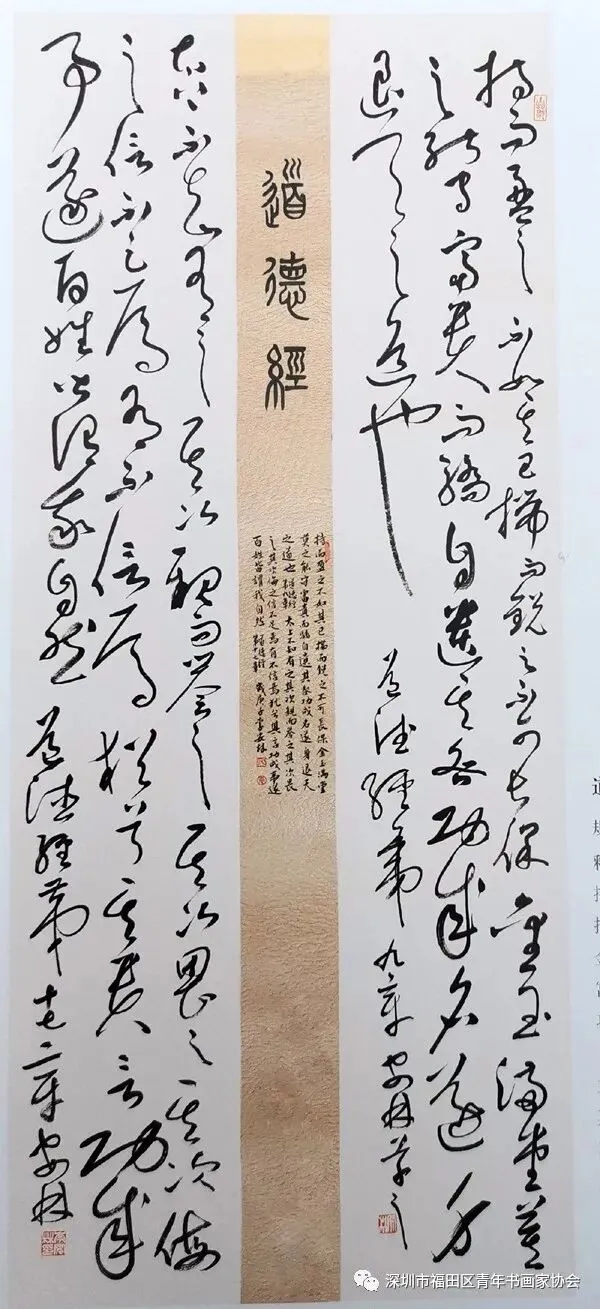 持而盈之不如其已揣而锐之不可长保金玉满堂莫
之能守富贵而骄自遗其咎功成名遂身
退天之道也
道德经第九章安林書
道德經
持而盈之不如其已揣而锐之不可長保金玉滿堂
莫之能守富貴而骄自遗其咎功成名遂身退天
之道也 太上不知有之其次親而譽之其次畏
之其次侮之信不足焉有不信焉犹兮其貴言功成事遂
百姓皆謂我自然
太上不知有之其次親而誉之其次畏之其次侮
之信不足焉有不信焉犹兮其贵言功成
事遂百姓皆谓我自然道德经第十七章安林
深圳市福田区青年书画家协会